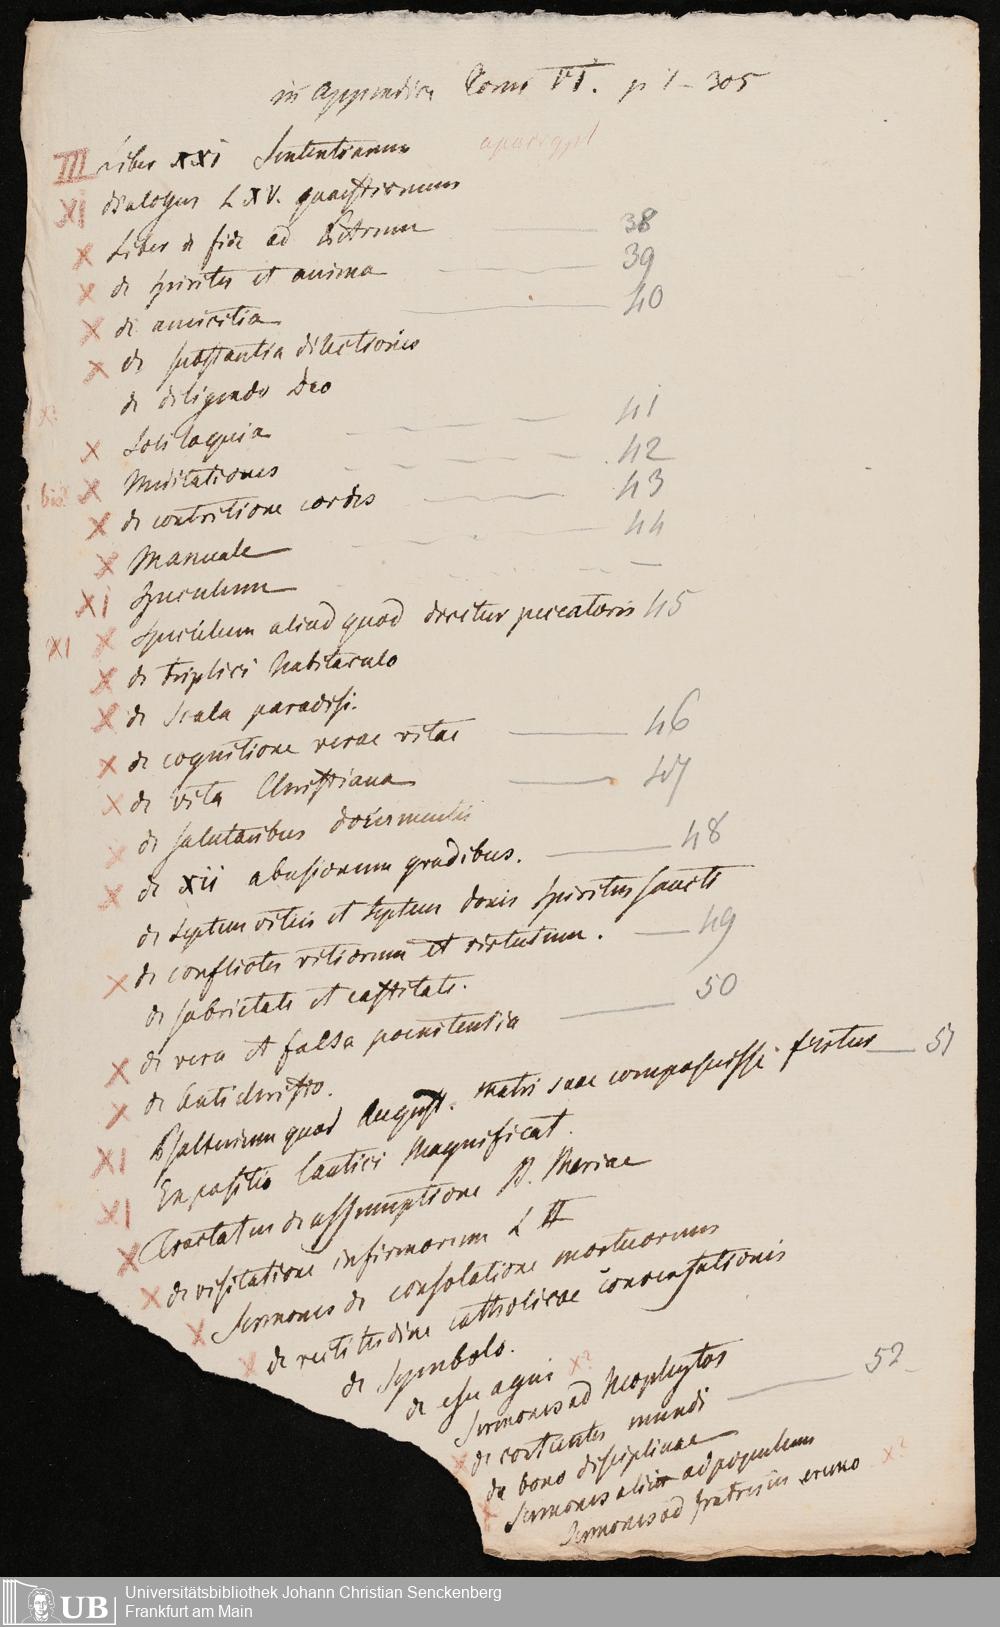 in Appendice Tomi VI. p 1 - 305
III Liber XXI Sententiarum apocryph
XI dialogus LXV. quaestionum
X Liber de fide ad Petrum 38
X de spiritu et anima 39
X de amicitia 40
X de substantia dilectionis
X? de diligendo Deo
X Soliloquia 41
bis? X Meditationes 42
X de contritione cordis 43
X Manuale 44
XI Speculum
XI X Speculum aliud quod dicitur peccatoris 45
X de triplici habitaculo
X de Scala paradisi.
X de cognitione verae vitae 46
X de vita Christiana 47
X de salutaribus documentis
X de XII abusionum gradibus. 48
de septem vitiis et septem donis Spiritus Sancti
X de conflictu vitiorum et virtutum. 49
de sobrietate et castitate.
X de vera et falsa poenitentia 50
X de Antichristo.
XI Psalterium quod August. matri suae composuisse fertur 51
XI Expositio Cantici Magnificat.
X Tractatus de assumptione B. Mariae
X de visitatione infirmorum L II
X Sermones de consolatione mortuorum
X de rectitudine catholicae conversationis
de Symbolo.
de esu agni X?
Sermones ad Neophytos
X de cantu mundi 52
de bono disciplinae
X Sermones alii ad populum
Sermones ad fratres in eremo X?
UB Universitätsbibliothek Johann Christian Senckenberg
Frankfurt am Main